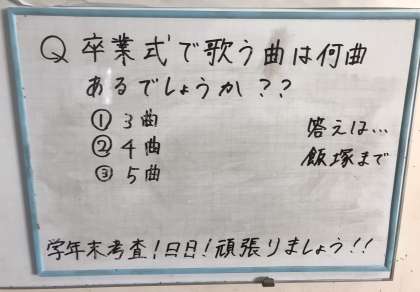 Q 卒業式で歌う曲は何曲
あるでしょうか??
① 3曲
② 4曲
③ 5曲
答えは…
飯塚まで
学年末考査!口日!頑張りましょう!!